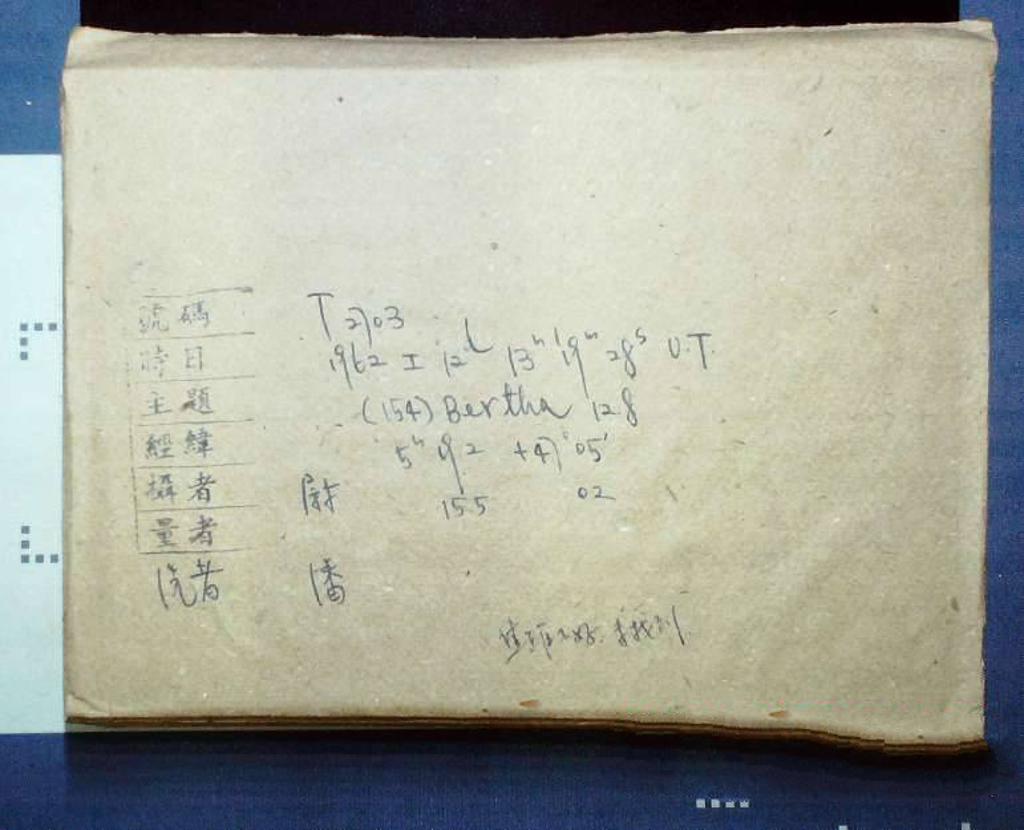 號碼 T 2703
時日 1962 I 12ᵈ 13ʰ 19ᵐ 28ˢ U.T.
主題 (154) Bertha 128
經緯 5ʰ 19.2 +47°05'
攝者 155 02
量者
洗者 潘